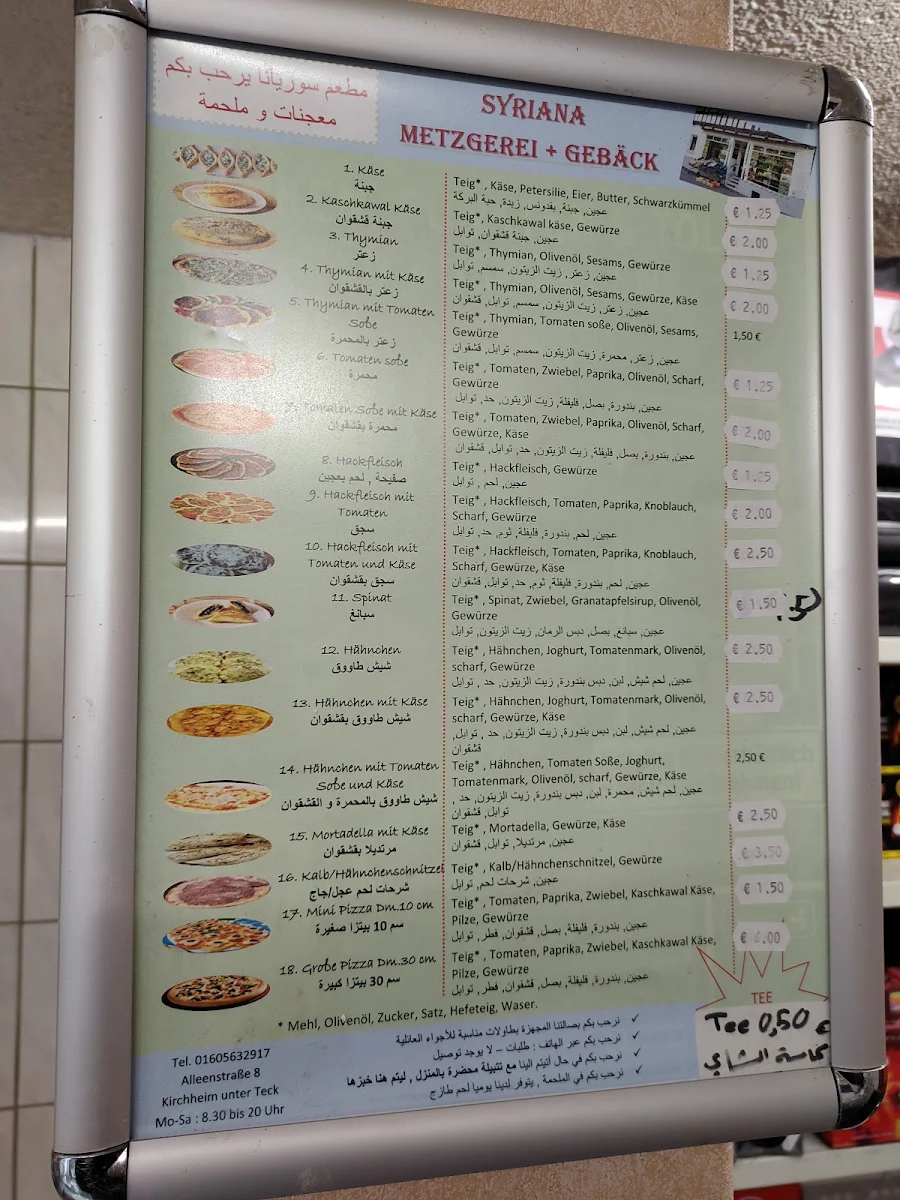 مطعم سوريانا يرحب بكم
معجنات و ملحمة
SYRIANA
METZGEREI + GEBÄCK
1. Käse
جبنة
Teig* , Käse, Petersilie, Eier, Butter, Schwarzkümmel
عجين, جبنة, بقدونس, زبدة, حبة البركة
€ 1.25
2. Kaschkawal Käse
جبنة قشقوان
Teig*, Kaschkawal käse, Gewürze
عجين, جبنة قشقوان, توابل
€ 2.00
3. Thymian
زعتر
Teig* , Thymian, Olivenöl, Sesams, Gewürze
عجين, زعتر, زيت الزيتون, سمسم, توابل
€ 1.25
4. Thymian mit Käse
زعتر بالقشقوان
Teig* , Thymian, Olivenöl, Sesams, Gewürze, Käse
عجين, زعتر, زيت الزيتون, سمسم, توابل, قشقوان
€ 2.00
5. Thymian mit Tomaten
Soße
زعتر بالمحمرة
Teig* , Thymian, Tomaten soße, Olivenöl, Sesams,
Gewürze
عجين, زعتر, محمرة, زيت الزيتون, سمسم, توابل, قشقوان
1,50 €
6. Tomaten soße
محمرة
Teig* , Tomaten, Zwiebel, Paprika, Olivenöl, Scharf,
Gewürze
عجين, بندورة, بصل, فليفلة, زيت الزيتون, حد, توابل
€ 1.25
7. Tomaten Soße mit Käse
محمرة بقشقوان
Teig* , Tomaten, Zwiebel, Paprika, Olivenöl, Scharf,
Gewürze, Käse
عجين, بندورة, بصل, فليفلة, زيت الزيتون, حد, توابل, قشقوان
€ 2.00
8. Hackfleisch
صفيحة , لحم بعجين
Teig* , Hackfleisch, Gewürze
عجين, لحم , توابل
€ 1.25
9. Hackfleisch mit
Tomaten
سجق
Teig* , Hackfleisch, Tomaten, Paprika, Knoblauch,
Scharf, Gewürze
عجين, لحم, بندورة, فليفلة, ثوم, حد, توابل
€ 2.00
10. Hackfleisch mit
Tomaten und Käse
سجق بقشقوان
Teig* , Hackfleisch, Tomaten, Paprika, Knoblauch,
Scharf, Gewürze, Käse
عجين, لحم, بندورة, فليفلة, ثوم, حد, توابل, قشقوان
€ 2.50
11. Spinat
سبانغ
Teig* , Spinat, Zwiebel, Granatapfelsirup, Olivenöl,
Gewürze
عجين, سبانغ, بصل, دبس الرمان, زيت الزيتون, توابل
€ 1.50
12. Hähnchen
شيش طاووق
Teig* , Hähnchen, Joghurt, Tomatenmark, Olivenöl,
scharf, Gewürze
عجين, لحم شيش, لبن, دبس بندورة, زيت الزيتون, حد , توابل
€ 2.50
13. Hähnchen mit Käse
شيش طاووق بقشقوان
Teig* , Hähnchen, Joghurt, Tomatenmark, Olivenöl,
scharf, Gewürze, Käse
عجين, لحم شيش, لبن, دبس بندورة, زيت الزيتون, حد , توابل,
قشقوان
€ 2.50
14. Hähnchen mit Tomaten
Soße und Käse
شيش طاووق بالمحمرة و القشقوان
Teig* , Hähnchen, Tomaten Soße, Joghurt,
Tomatenmark, Olivenöl, scharf, Gewürze, Käse
عجين, لحم شيش, محمرة, لبن, دبس بندورة, زيت الزيتون, حد ,
توابل, قشقوان
2,50 €
15. Mortadella mit Käse
مرتديلا بقشقوان
Teig* , Mortadella, Gewürze, Käse
عجين, مرتديلا, توابل, قشقوان
€ 2.50
16. Kalb/Hähnchenschnitzel
شرحات لحم عجل/جاج
Teig* , Kalb/Hähnchenschnitzel, Gewürze
عجين, شرحات لحم, توابل
€ 3.50
17. Mini Pizza Dm.10 cm
سم 10 بيتزا صغيرة
Teig* , Tomaten, Paprika, Zwiebel, Kaschkawal Käse,
Pilze, Gewürze
عجين, بندورة, فليفلة, بصل, قشقوان, فطر, توابل
€ 1.50
18. Große Pizza Dm.30 cm
سم 30 بيتزا كبيرة
Teig* , Tomaten, Paprika, Zwiebel, Kaschkawal Käse,
Pilze, Gewürze
عجين, بندورة, فليفلة, بصل, قشقوان, فطر, توابل
€ 6.00
* Mehl, Olivenöl, Zucker, Satz, Hefeteig, Waser.
TEE
Tee 0,50 €
كاسة الشاي
✓ نرحب بكم بصالتنا المجهزة بطاولات مناسبة للأجواء العائلية
✓ نرحب بكم عبر الهاتف : طلبات – لا يوجد توصيل
✓ نرحب بكم في حال أتيتم الينا مع تتبيلة محضرة بالمنزل , ليتم هنا خبزها
✓ نرحب بكم في الملحمة , يتوفر لدينا يوميا لحم طازج
Tel. 01605632917
Alleenstraße 8
Kirchheim unter Teck
Mo-Sa : 8.30 bis 20 Uhr